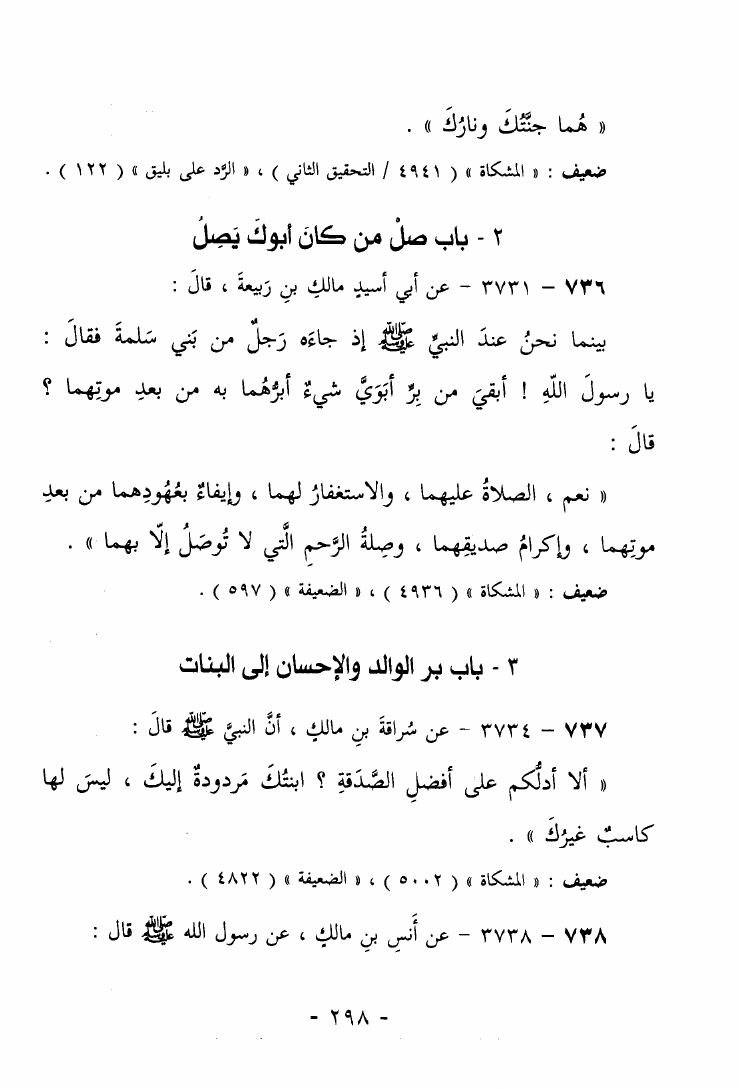 « هُما جنَّتُكَ ونارُكَ » .
ضعيف : « المشكاة » ( ٤٩٤١ / التحقيق الثاني ) ، « الرَّد على بليق » ( ١٢٢ ) .
٢ - باب صلْ من كانَ أبوكَ يَصِلُ
٧٣٦ – ٣٧٣١ – عن أبي أسيدٍ مالكِ بنِ رَبيعةَ ، قالَ :
بينما نحنُ عندَ النبيِّ ﷺ إذ جاءَه رَجلٌ من بَني سَلمةَ فقالَ :
يا رسولَ اللّهِ ! أبقيَ من بِرِّ أبَوَيَّ شيءٌ أبرُّهُما به من بعدِ موتِهما ؟
قالَ :
« نعم ، الصلاةُ عليهما ، والاستغفارُ لهما ، وإيفاءٌ بعُهُودِهما من بعدِ
موتِهما ، وإكرامُ صديقِهما ، وصِلةُ الرَّحمِ الَّتي لا تُوصَلُ إلّا بهما » .
ضعيف : « المشكاة » ( ٤٩٣٦ ) ، « الضعيفة » ( ٥٩٧ ) .
٣ - باب بر الوالد والإحسان إلى البنات
٧٣٧ – ٣٧٣٤ – عن سُراقةَ بنِ مالكٍ ، أنَّ النبيَّ ﷺ قالَ :
« ألا أدلُّكم على أفضلِ الصَّدَقةِ ؟ ابنتُكَ مَردودةٌ إليكَ ، ليسَ لها
كاسبٌ غيرُكَ » .
ضعيف : « المشكاة » ( ٥٠٠٢ ) ، « الضعيفة » ( ٤٨٢٢ ) .
٧٣٨ – ٣٧٣٨ – عن أَنسِ بنِ مالكٍ ، عن رسول الله ﷺ قال :
- ٢٩٨ -